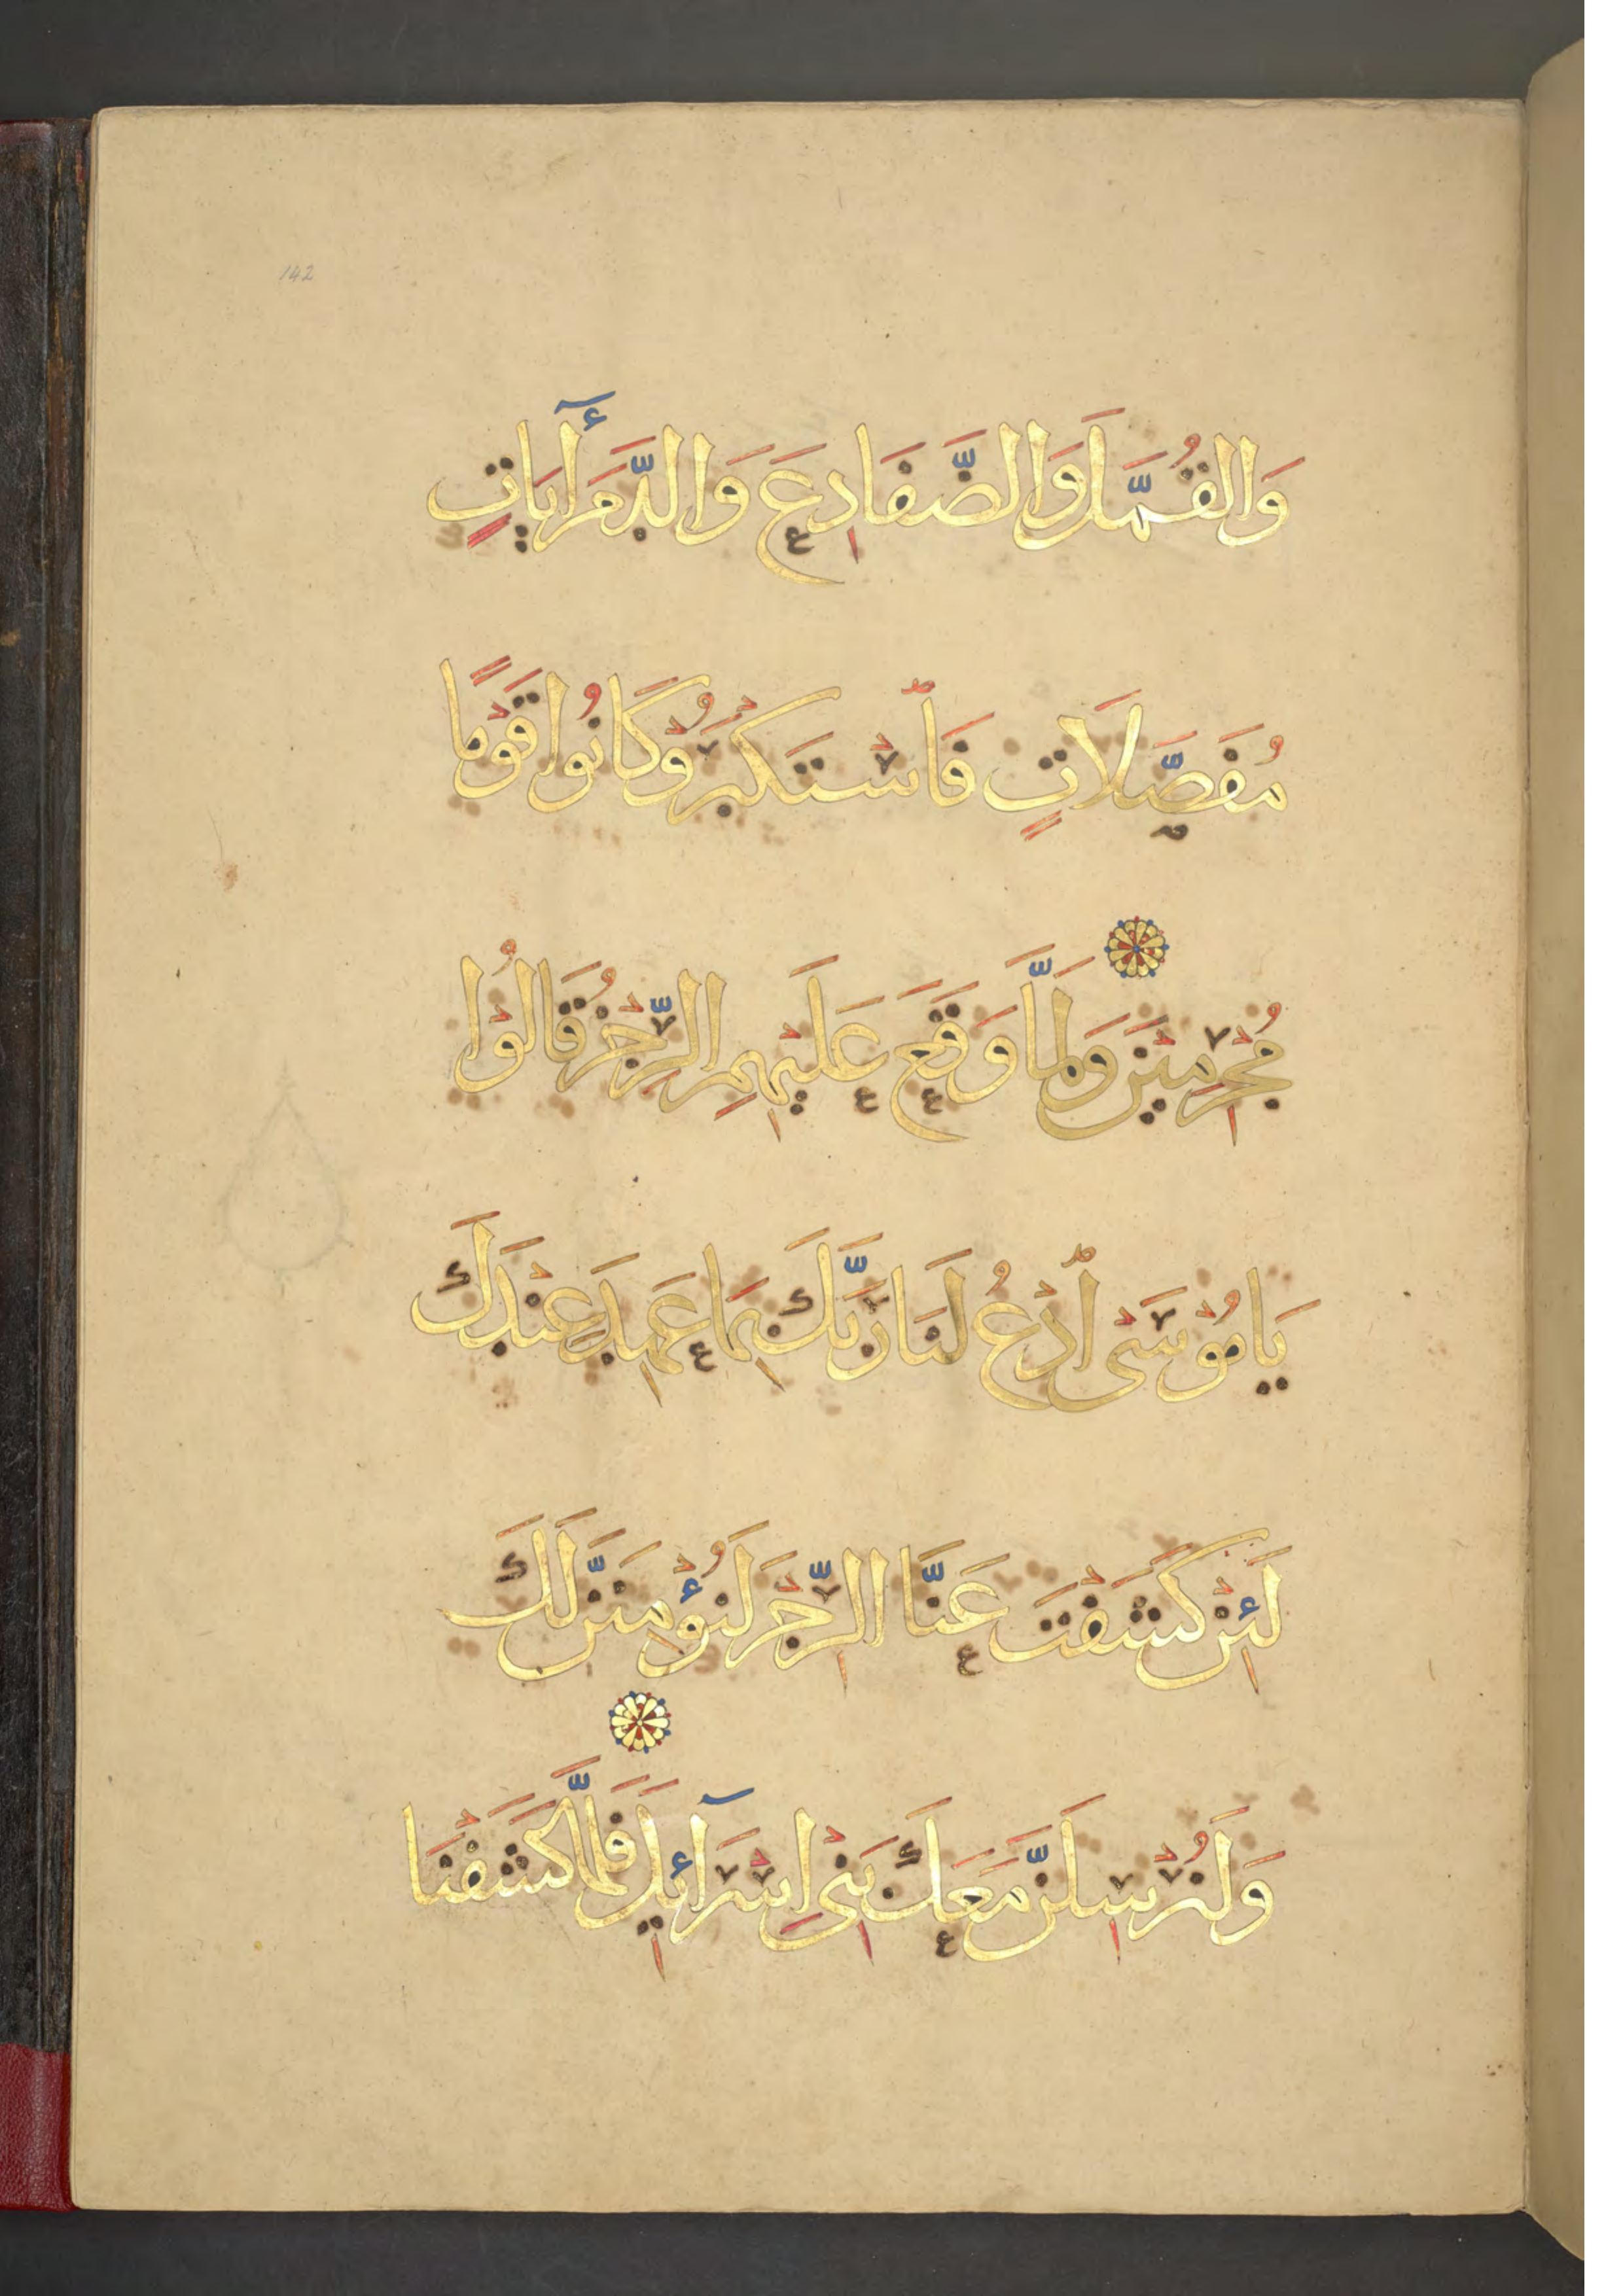 142
وَالقُمَّلَ وَالضَّفَادِعَ وَالدَّمَ أَيَاتٍ
مُفَصَّلَاتٍ فَاسْتَكْبَرُوْ وَكَانُوا قَوْمًا
مُجْرِمِيْنَ وَلَمَّا وَقَعَ عَلَيْهِمِ الرِّجْزُ قَالُوْا
يَا مُوْسَى ادْعُ لَنَا رَبَّكَ بِمَا عَهِدَ عِنْدَكَ
لَئِنْ كَشَفْتَ عَنَّا الرِّجْزَ لَنُؤْمِنَنَّ لَكَ
وَلَنُرْسِلَنَّ مَعَكَ بَنِي إِسْرَآئِيلَ فَلَمَّا كَشَفْنَا